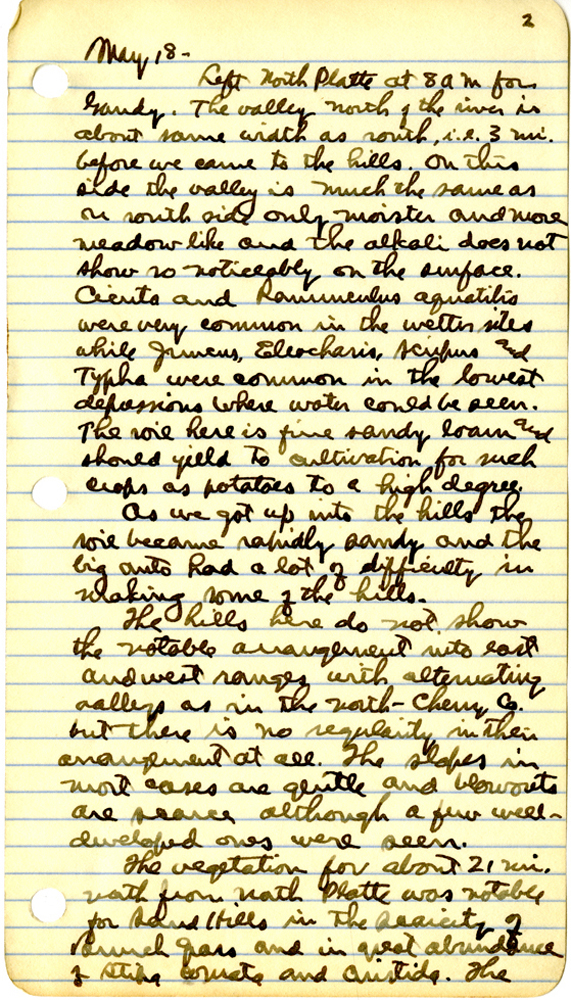 2
May 18-
Left North Platte at 8 a m for
Gandy. The valley north of the river is
about same width as south, i.e. 3 mi.
before we came to the hills. On this
side the valley is much the same as
on south side only moister and more
meadow like and the alkali does not
show so noticeably on the surface.
Cicuta and Ranunculus aquatilis
were very common in the wetter sites
while Juncus, Eleocharis, Scirpus and
Typha were common in the lowest
depressions where water could be seen.
The soil here is fine sandy loam and
should yield to cultivation for such
crops as potatoes to a high degree.
As we got up into the hills the
soil became rapidly sandy and the
big auto had a lot of difficulty in
making some of the hills.
The hills here do not show
the notable arrangement into east
and west ranges with alternating
valleys as in the north - Cherry Co.
but there is no regularity in their
arrangement at all. The slopes in
most cases are gentle and blowouts
are scarce although a few well-
developed ones were seen.
The vegetation for about 21 mi.
north from North Platte was notable
for Sand Hills in the scarcity of
Bunch grass and in great abundance
of Stipa comata and aristida. The